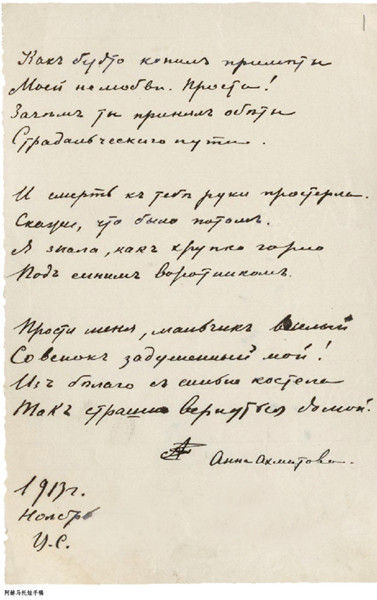 1
Какъ будто копилъ примѣты
Моей нелюбви. Прости!
Зачѣмъ ты принялъ обѣты
Страдальческаго пути.
И смерть къ тебѣ руки простерла.
Скажи, что было потомъ.
Я знала, какъ хрупко горло
Подъ синимъ воротникомъ.
Прости меня, мальчикъ веселый
Совенокъ задушенный мой!
Изъ бѣлаго съ синью костела
Такъ страшно вернуться домой.
Анна Ахматова.
1913г.
Ноябрь
Ц.С.
阿赫马托娃手稿